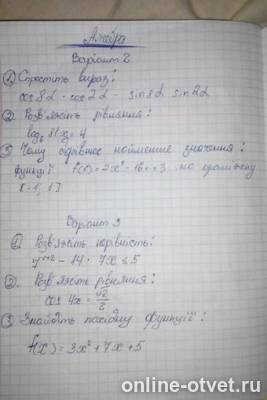 Алгебра
Варіант 2
① Спростіть вираз:
cos 8α · cos 2α - sin 8α sin 2α
② Розв'яжіть рівняння:
log x = 4
③ Чому дорівнює найменше значення:
функції f(x) = 2x² - 16x + 3 на проміжку
[-1, 1]
Варіант 3
① Розв'яжіть нерівність:
- 14 · 7x ≤ 5
②. Розв'яжіть рівняння:
cos 4x = √2/2
③ Знайдіть похідну функції:
f(x) = 3x² + 7x + 5
online-otvet.ru